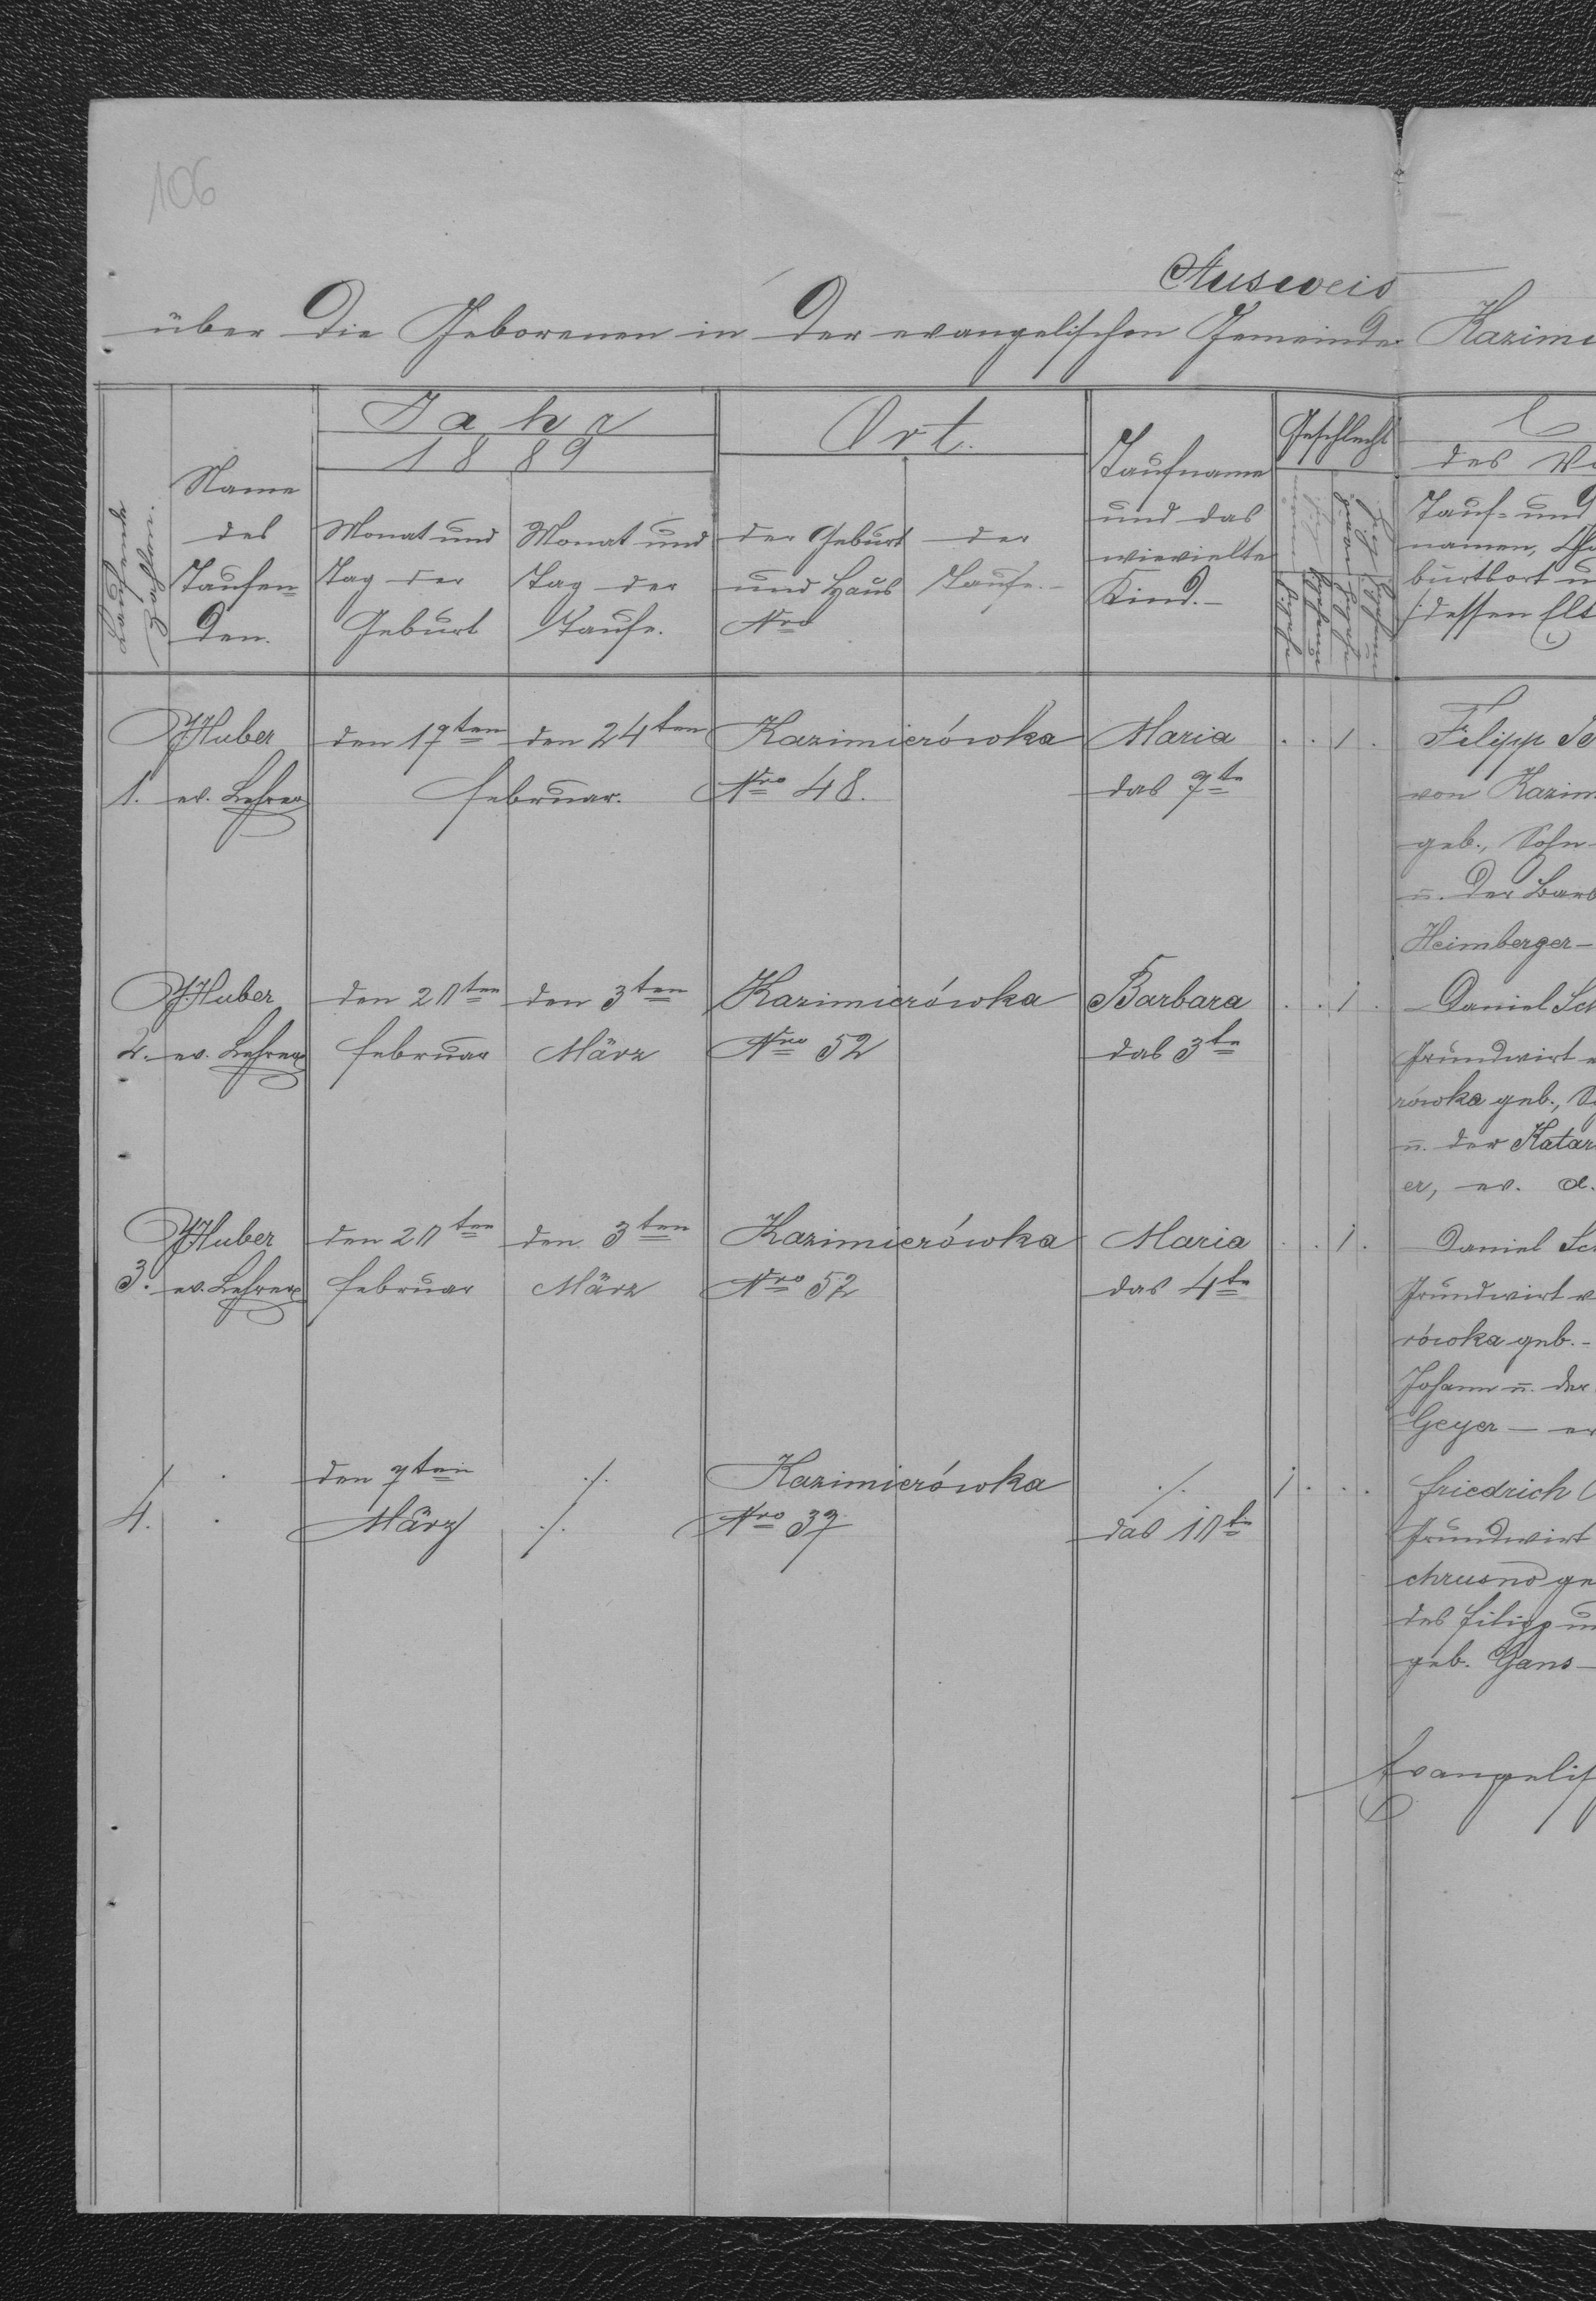 106
Ausweis
über die Geborenen in der evangelischen Gemeinde Kazimi
Laufende
Zahlen.
Name
des
Taufen=
den.
Jahr
1889
Monat und
Tag der
Geburt
Monat und
Tag der
Taufe.
Ort.
der Geburt
und Haus
Nro
der
Taufe.-
Taufname
und das
wievielte
Kind.-
Geschlecht
des Va
Tauf- und
namen,
burtsort u
/:dessen Elt
1.
J.Huber
ev. Lehrer
den 17ten
den 24ten
Februar.
Kazimierówka
Nro 48.
Maria
das 7te
. . 1 .
Filipp Sc
von Kazim
geb., Sohn
u. der Barb
Heimberger-
2.
J.Huber
ev. Lehrer
den 20ten
Februar
den 3ten
März
Kazimierówka
Nro 52
Barbara
das 3te
. . 1 .
Daniel Sch
Grundwirt
rówka geb., S
u. der Katar
er, ev. a.
3.
J.Huber
ev. Lehrer
den 20ten
Februar
den 3ten
März
Kazimierówka
Nro 52
Maria
das 4te
. . 1 .
Daniel Sch
Grundwirt v
rówka geb.-
Johann u. der
Geyer - ev
4.
den 7ten
März
./.
./.
Kazimierówka
Nro 37
./.
das 10te
1 . . .
Friedrich
Grundwirt
chrusno ge
des Filipp un
geb. Gans-
Evangelis